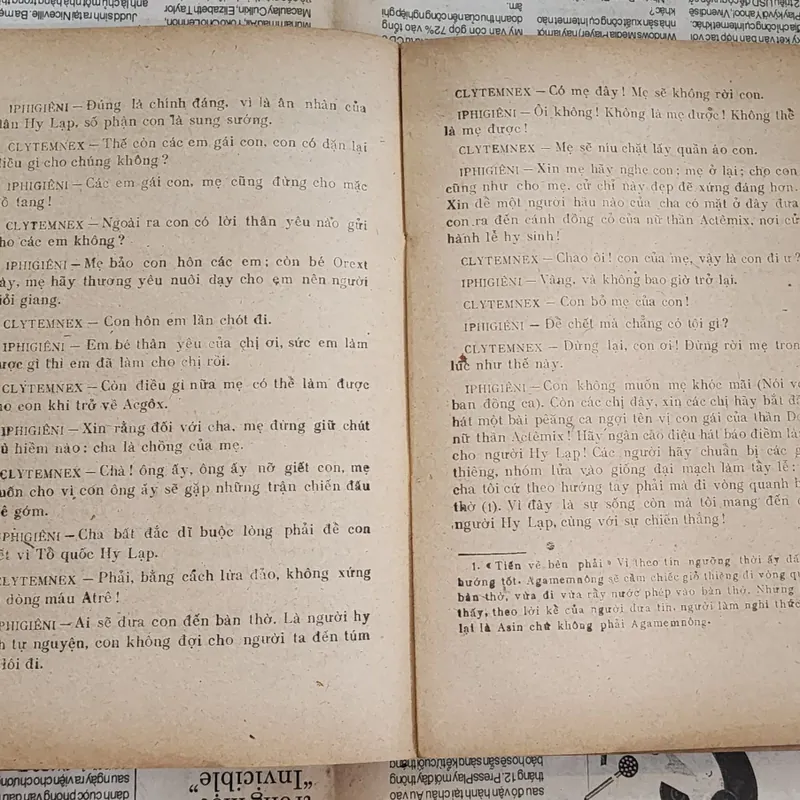 IPHIGIÊNI — Đúng là chính đáng, vì là ân nhân của
dân Hy Lạp, số phận con là sung sướng.
CLYTEMNEX — Thế còn các em gái con, con có dặn lại
điều gì cho chúng không?
IPHIGIÊNI — Các em gái con, mẹ cũng đừng cho mặc
đồ tang!
CLYTEMNEX — Ngoài ra con có lời thân yêu nào gửi
cho các em không?
IPHIGIÊNI — Mẹ bảo con hôn các em; còn bé Orext
này, mẹ hãy thương yêu nuôi dạy cho em nên người
giỏi giang.
CLYTEMNEX — Con hôn em lần chót đi.
IPHIGIÊNI — Em bé thân yêu của chị ơi, sức em làm
được gì thì em đã làm cho chị rồi.
CLYTEMNEX — Còn điều gì nữa mẹ có thể làm được
cho con khi trở về Acgôx.
IPHIGIÊNI — Xin rằng đối với cha, mẹ đừng giữ chút
hiềm nào; cha là chồng của mẹ.
CLYTEMNEX — Chà! ông ấy, ông ấy nỡ giết con, mẹ
muốn cho vì con ông ấy sẽ gặp những trận chiến đấu
ghê gớm.
IPHIGIÊNI — Cha bất đắc dĩ buộc lòng phải để con
chết vì Tổ quốc Hy Lạp.
CLYTEMNEX — Phải, bằng cách lừa đảo, không xứng
dòng máu Atrê!
IPHIGIÊNI — Ai sẽ đưa con đến bàn thờ. Là người hy
sinh tự nguyện, con không đợi cho người ta đến túm
lôi đi.
CLYTEMNEX — Có mẹ đây! Mẹ sẽ không rời con.
IPHIGIÊNI — Ôi không! Không là mẹ được! Không thể
là mẹ được!
CLYTEMNEX — Mẹ sẽ níu chặt lấy quần áo con.
IPHIGIÊNI — Xin mẹ hãy nghe con; mẹ ở lại; cho con
cũng như cho mẹ, cử chỉ này đẹp đẽ xứng đáng hơn.
Xin để một người hầu nào của cha có mặt ở đây đưa
con ra đến cánh đồng cỏ của nữ thần Actêmix, nơi cử
hành lễ hy sinh!
CLYTEMNEX — Chao ôi! con của mẹ, vậy là con đi ư?
IPHIGIÊNI — Vâng, và không bao giờ trở lại.
CLYTEMNEX — Con bỏ mẹ của con!
IPHIGIÊNI — Để chết mà chẳng có tội gì?
CLYTEMNEX — Dừng lại, con ơi! Đừng rời mẹ trong
lúc như thế này.
IPHIGIÊNI — Con không muốn mẹ khóc mãi (Nói với
ban đồng ca). Còn các chị đây, xin các chị hãy bắt đầu
hát một bài pêăng ca ngợi tên vị con gái của thần
nữ thần Actêmix! Hãy ngân cao điệu hát báo điềm lành
cho người Hy Lạp! Các người hãy chuẩn bị các giỏ
thiêng, nhóm lửa vào giống đại mạch làm tẩy lễ;
cha tôi cứ theo hướng tay phải mà đi vòng quanh bàn
thờ (1). Vì đây là sự sống còn mà tôi mang đến cho
người Hy Lạp, cùng với sự chiến thắng!
1. « Tiến về bên phải » Vì theo tín ngưỡng thời ấy
hướng tốt. Agamemnông sẽ cầm chiếc giỏ thiêng đi vòng quanh
bàn thờ, vừa đi vừa rảy nước phép vào bàn thờ. Nhưng
thấy, theo lời kể của người đưa tin, người làm nghi thức
lại là Asin chứ không phải Agamemnông.
"Invicible"